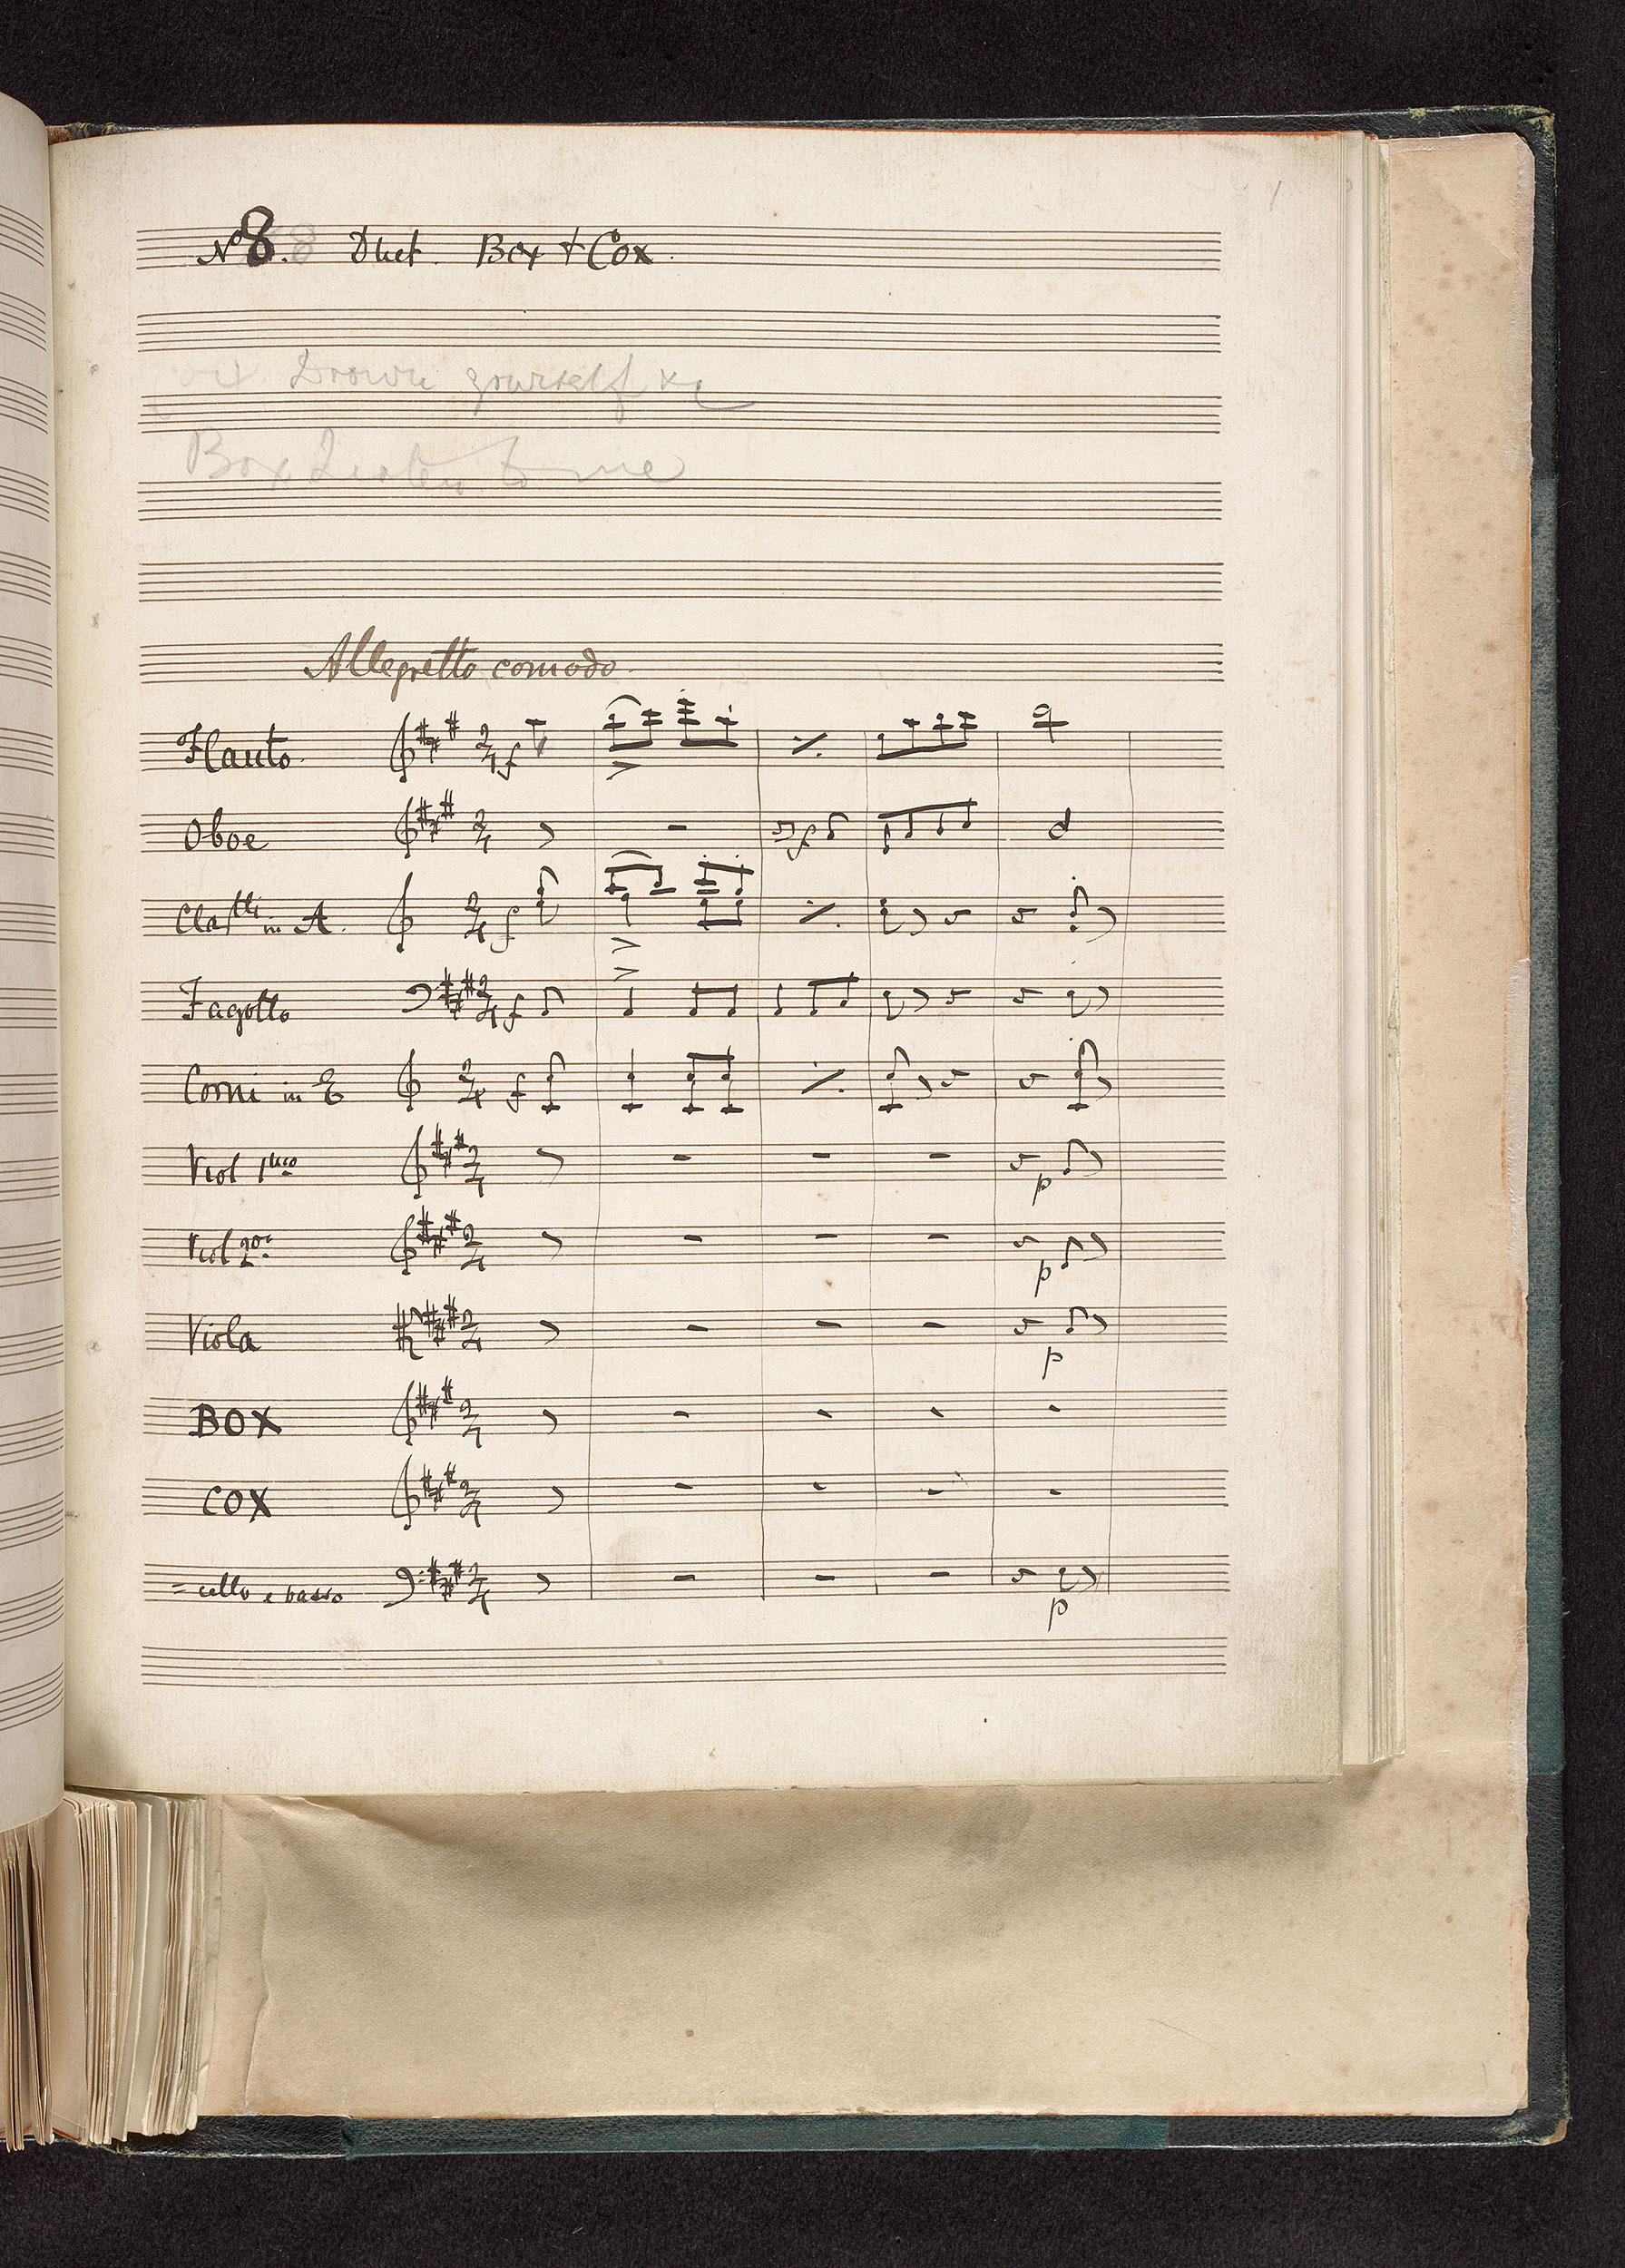 1
No 8. Duet. Box & Cox.
Drown yourself &c
Box Listen to me
Allegretto comodo.
Flauto.
Oboe
Clartti in A.
Fagotto
Corni in E
Viol 1mo
Viol 2do
Viola
BOX
COX
= cello e basso